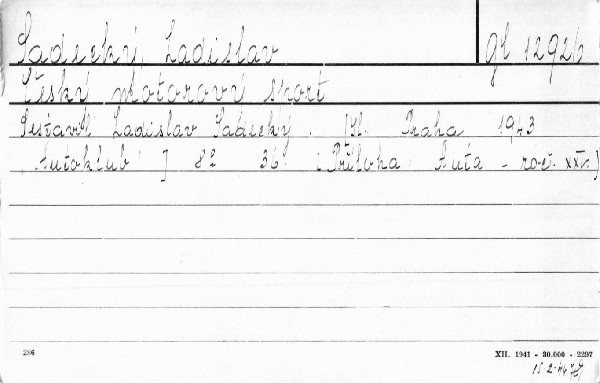 Sadecký, Ladislav
gl 12926
Český motorový sport
Sestavil Ladislav Sadecký. [Hl. Praha 1943
Autoklub ] 8° 36 (Příloha: Auta - roč. XXV.)
286
XII. 1941 - 30.000 - 2297